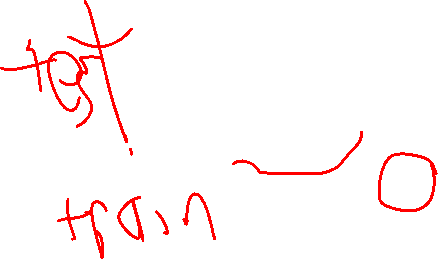 test
train